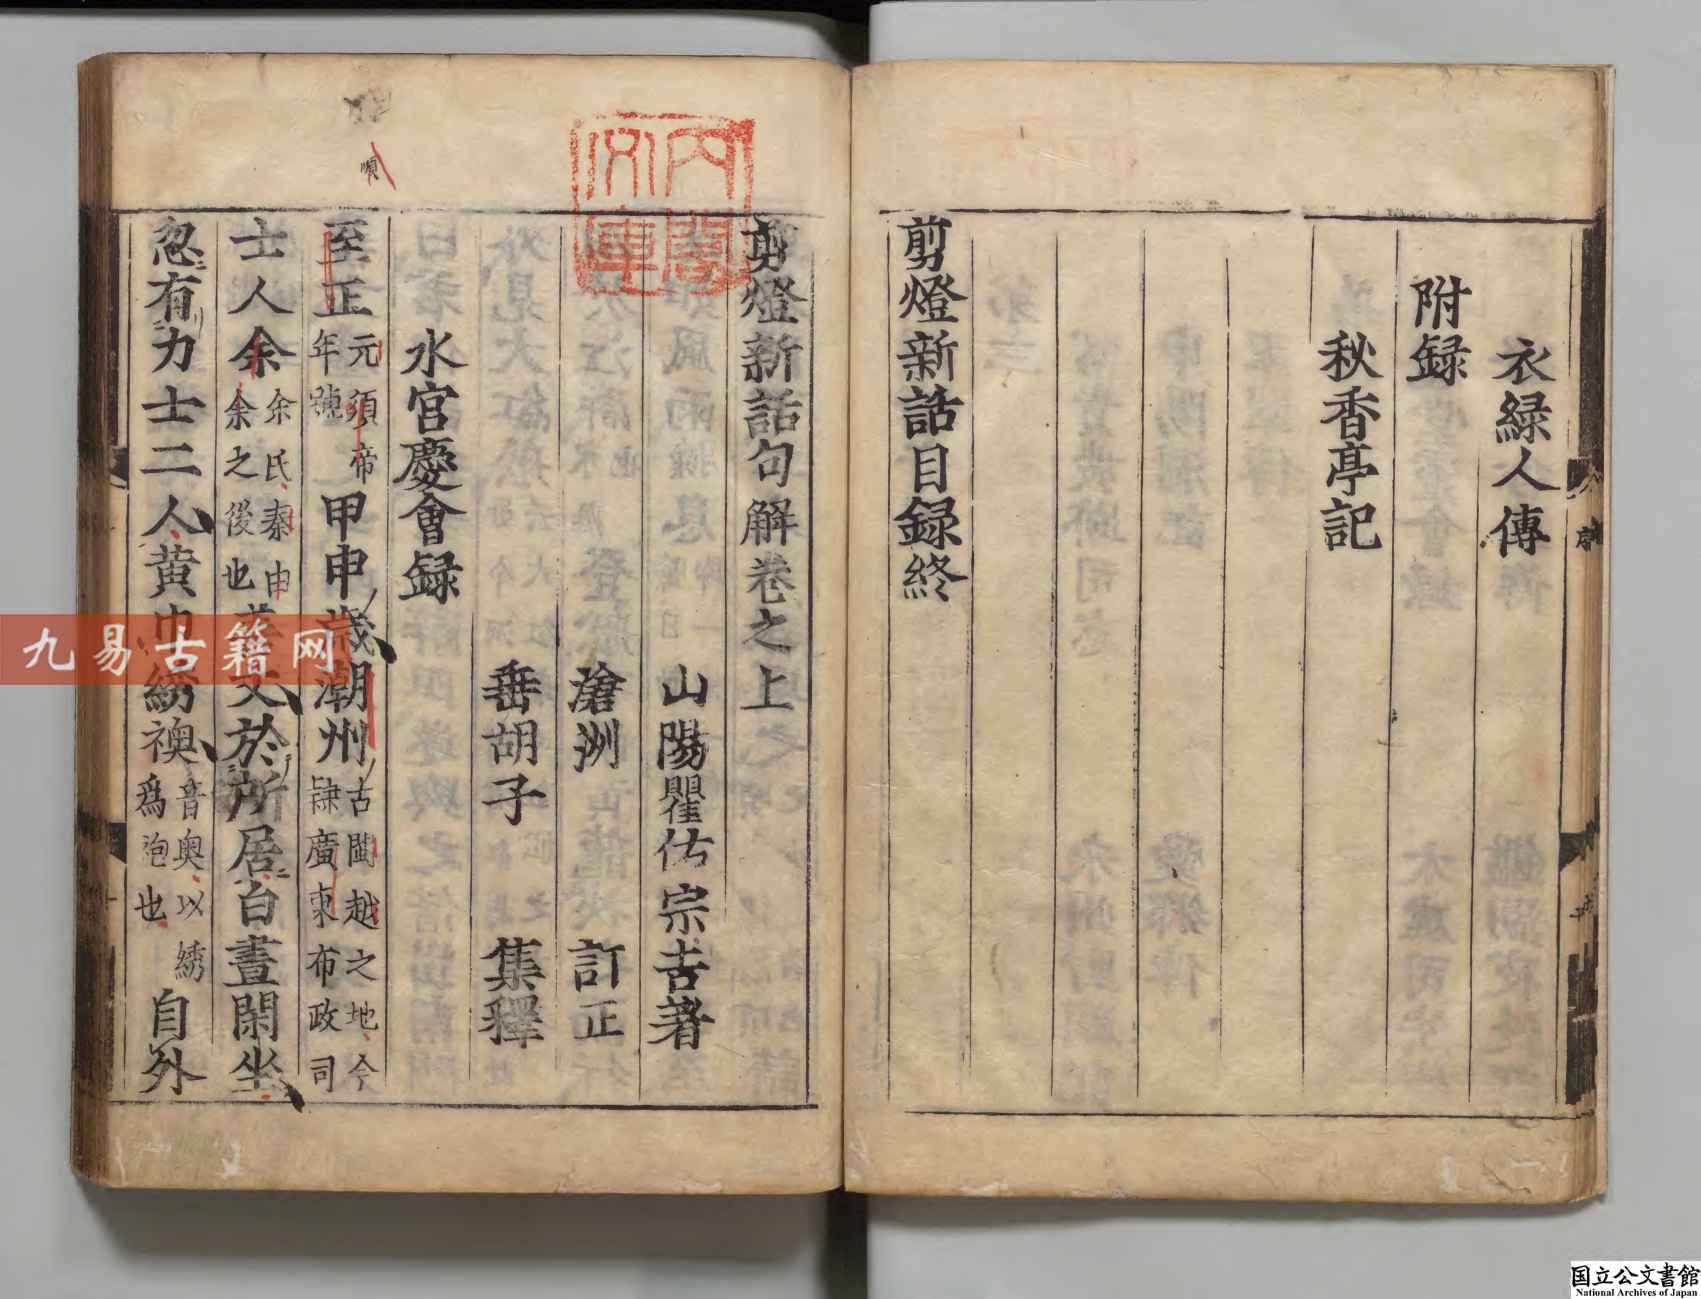 衣緑人傳
附録
秋香亭記
剪燈新話目録終
剪燈新話句解卷之上
山陽瞿佑宗吉著
滄洲 訂正
垂胡子 集釋
水宮慶會録
至正元順帝年號甲申歳潮州古閩越之地今隷廣東布政司
士人余余氏秦由余之後也善文於所居白晝閑坐
忽有力士二人黄巾綉襖音奥以綉爲袍也自外
順
内閣文庫
九易古籍网
国立公文書館
National Archives of Japan